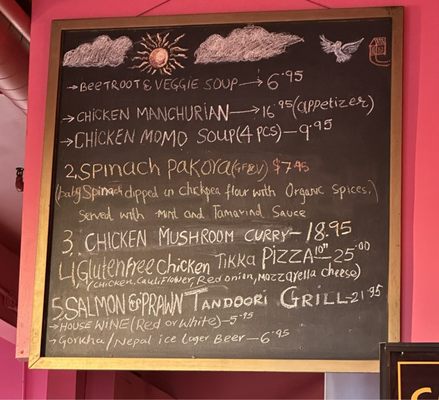 →BEETROOT & VEGGIE SOUP→6.95
→CHICKEN MANCHURIAN→16.95(appetizer)
→CHICKEN MOMO SOUP(4 PCS)-9.95
2.SPINACH PAKORA(GF&V) $7.45
(baby Spinach dipped in chickpea flour with Organic Spices.)
Served with mint and Tamarind Sauce
3. CHICKEN MUSHROOM CURRY-18.95
4.Glutenfree Chicken Tikka PIZZA 10"-25.00
(chicken, Cauliflower, Red onion, Mozzarella cheese)
5.SALMON & PRAWN TANDOORI GRILL-21.95
→HOUSE WINE(Red or White)-5.95
→Gorkha/Nepal ice Lager Beer-6.95